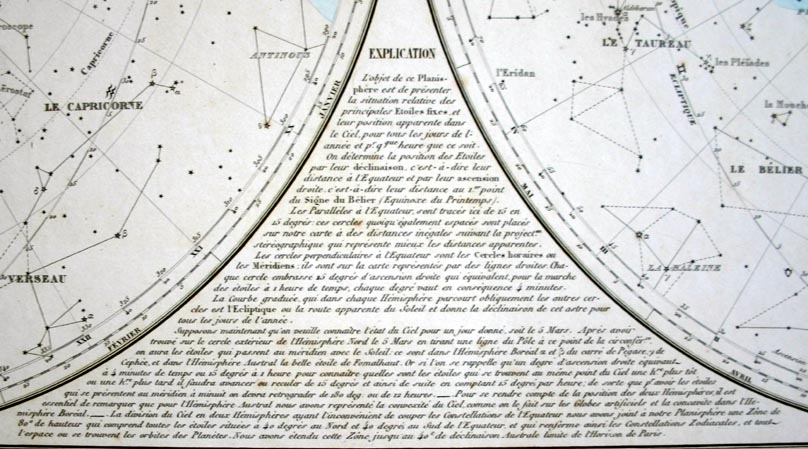 EXPLICATION
L'objet de ce Planis-
phère est de présenter
la situation relative des
principales Etoiles fixes, et
leur position apparente dans
le Ciel, pour tous les jours de l'-
année et pr. qque heure que ce soit.
On détermine la position des Etoiles
par leur déclinaison, c'est-à-dire leur
distance à l'Equateur et par leur ascension
droite, c'est-à-dire leur distance au 1er point
du Signe du Bélier (Equinoxe du Printemps).
Les Parallèles à l'Equateur, sont tracés ici de 15 en
15 degrés: ces cercles quoiqu'également espacés sont placés
sur notre carte à des distances inégales suivant la project.on
stéréographique qui représente mieux les distances apparentes.
Les cercles perpendiculaires à l'Equateur sont les Cercles horaires ou
les Méridiens; ils sont sur la carte représentés par des lignes droites. Cha-
que cercle embrasse 15 degrés d'ascension droite qui équivalent, pour la marche
des étoiles à 1 heure de temps, chaque degré vaut en conséquence 4 minutes.
La Courbe graduée, qui dans chaque Hémisphère parcourt obliquement les autres cer-
cles est l'Ecliptique ou la route apparente du Soleil et donne la déclinaison de cet astre pour
tous les jours de l'année.
Supposons maintenant qu'on veuille connaître l'état du Ciel pour un jour donné, soit le 5 Mars. Après avoir
trouvé sur le cercle extérieur de l'Hémisphère Nord le 5 Mars en tirant une ligne du Pôle à ce point de la circonfér.ce
on aura les étoiles qui passent au méridien avec le Soleil: ce sont dans l'Hémisphère Boréal α et β du carré de Pégase, γ de
Cephée, et dans l'Hémisphère Austral la belle étoile de Fomalhaut. Or si l'on se rappelle qu'un degré d'ascension droite équivaut
à 4 minutes de temps ou 15 degrés à 1 heure pour connaître quelles sont les étoiles qui se trouvent au même point du Ciel une h.re plus tôt
ou une h.re plus tard il faudra avancer ou reculer de 15 degrés et ainsi de suite en comptant 15 degrés par heure; de sorte que pr avoir les étoiles
qui se présentent au méridien à minuit on devra retrograder de 180 deg. ou de 12 heures. — Pour se rendre compte de la position des deux Hémisphères, il est
essentiel de remarquer que pour l'Hémisphère Austral nous avons représenté la convexité du Ciel, comme on le fait sur les globes artificiels et la concavité dans l'Hé-
misphère Boréal. — La division du Ciel en deux Hémisphères ayant l'inconvénient de couper les Constellations de l'Equateur nous avons joint à notre Planisphère une Zône de
80° de hauteur qui comprend toutes les étoiles situées à 40 degrés au Nord et 40 degrés au Sud de l'Equateur, et qui renferme ainsi les Constellations Zodiacales, et tout
l'espace ou se trouvent les orbites des Planètes. Nous avons étendu cette Zône jusqu'au 40° de déclinaison Australe limite de l'Horison de Paris.
Capricorne
LE CAPRICORNE
ANTINOUS
VERSEAU
JANVIER
FÉVRIER
XX
XXI
XXII
les Hyades
LE TAUREAU
les Pléiades
l'Eridan
ECLIPTIQUE
LE BÉLIER
LA BALEINE
MAI
AVRIL
III